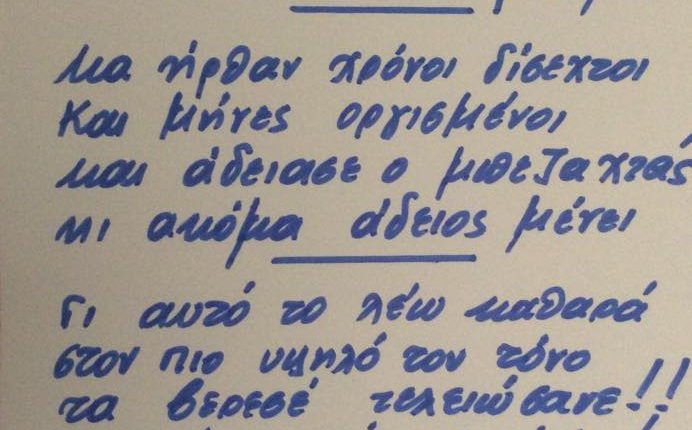 Μα ήρθαν χρόνοι δίσεχτοι
Και μήνες οργισμένοι
και άδειασε ο μπεζαχτάς
κι ακόμα άδειος μένει
Γι αυτό το λέω καθαρά
στον πιο υψηλό τον τόνο
τα βερεσέ τελειώσανε!!